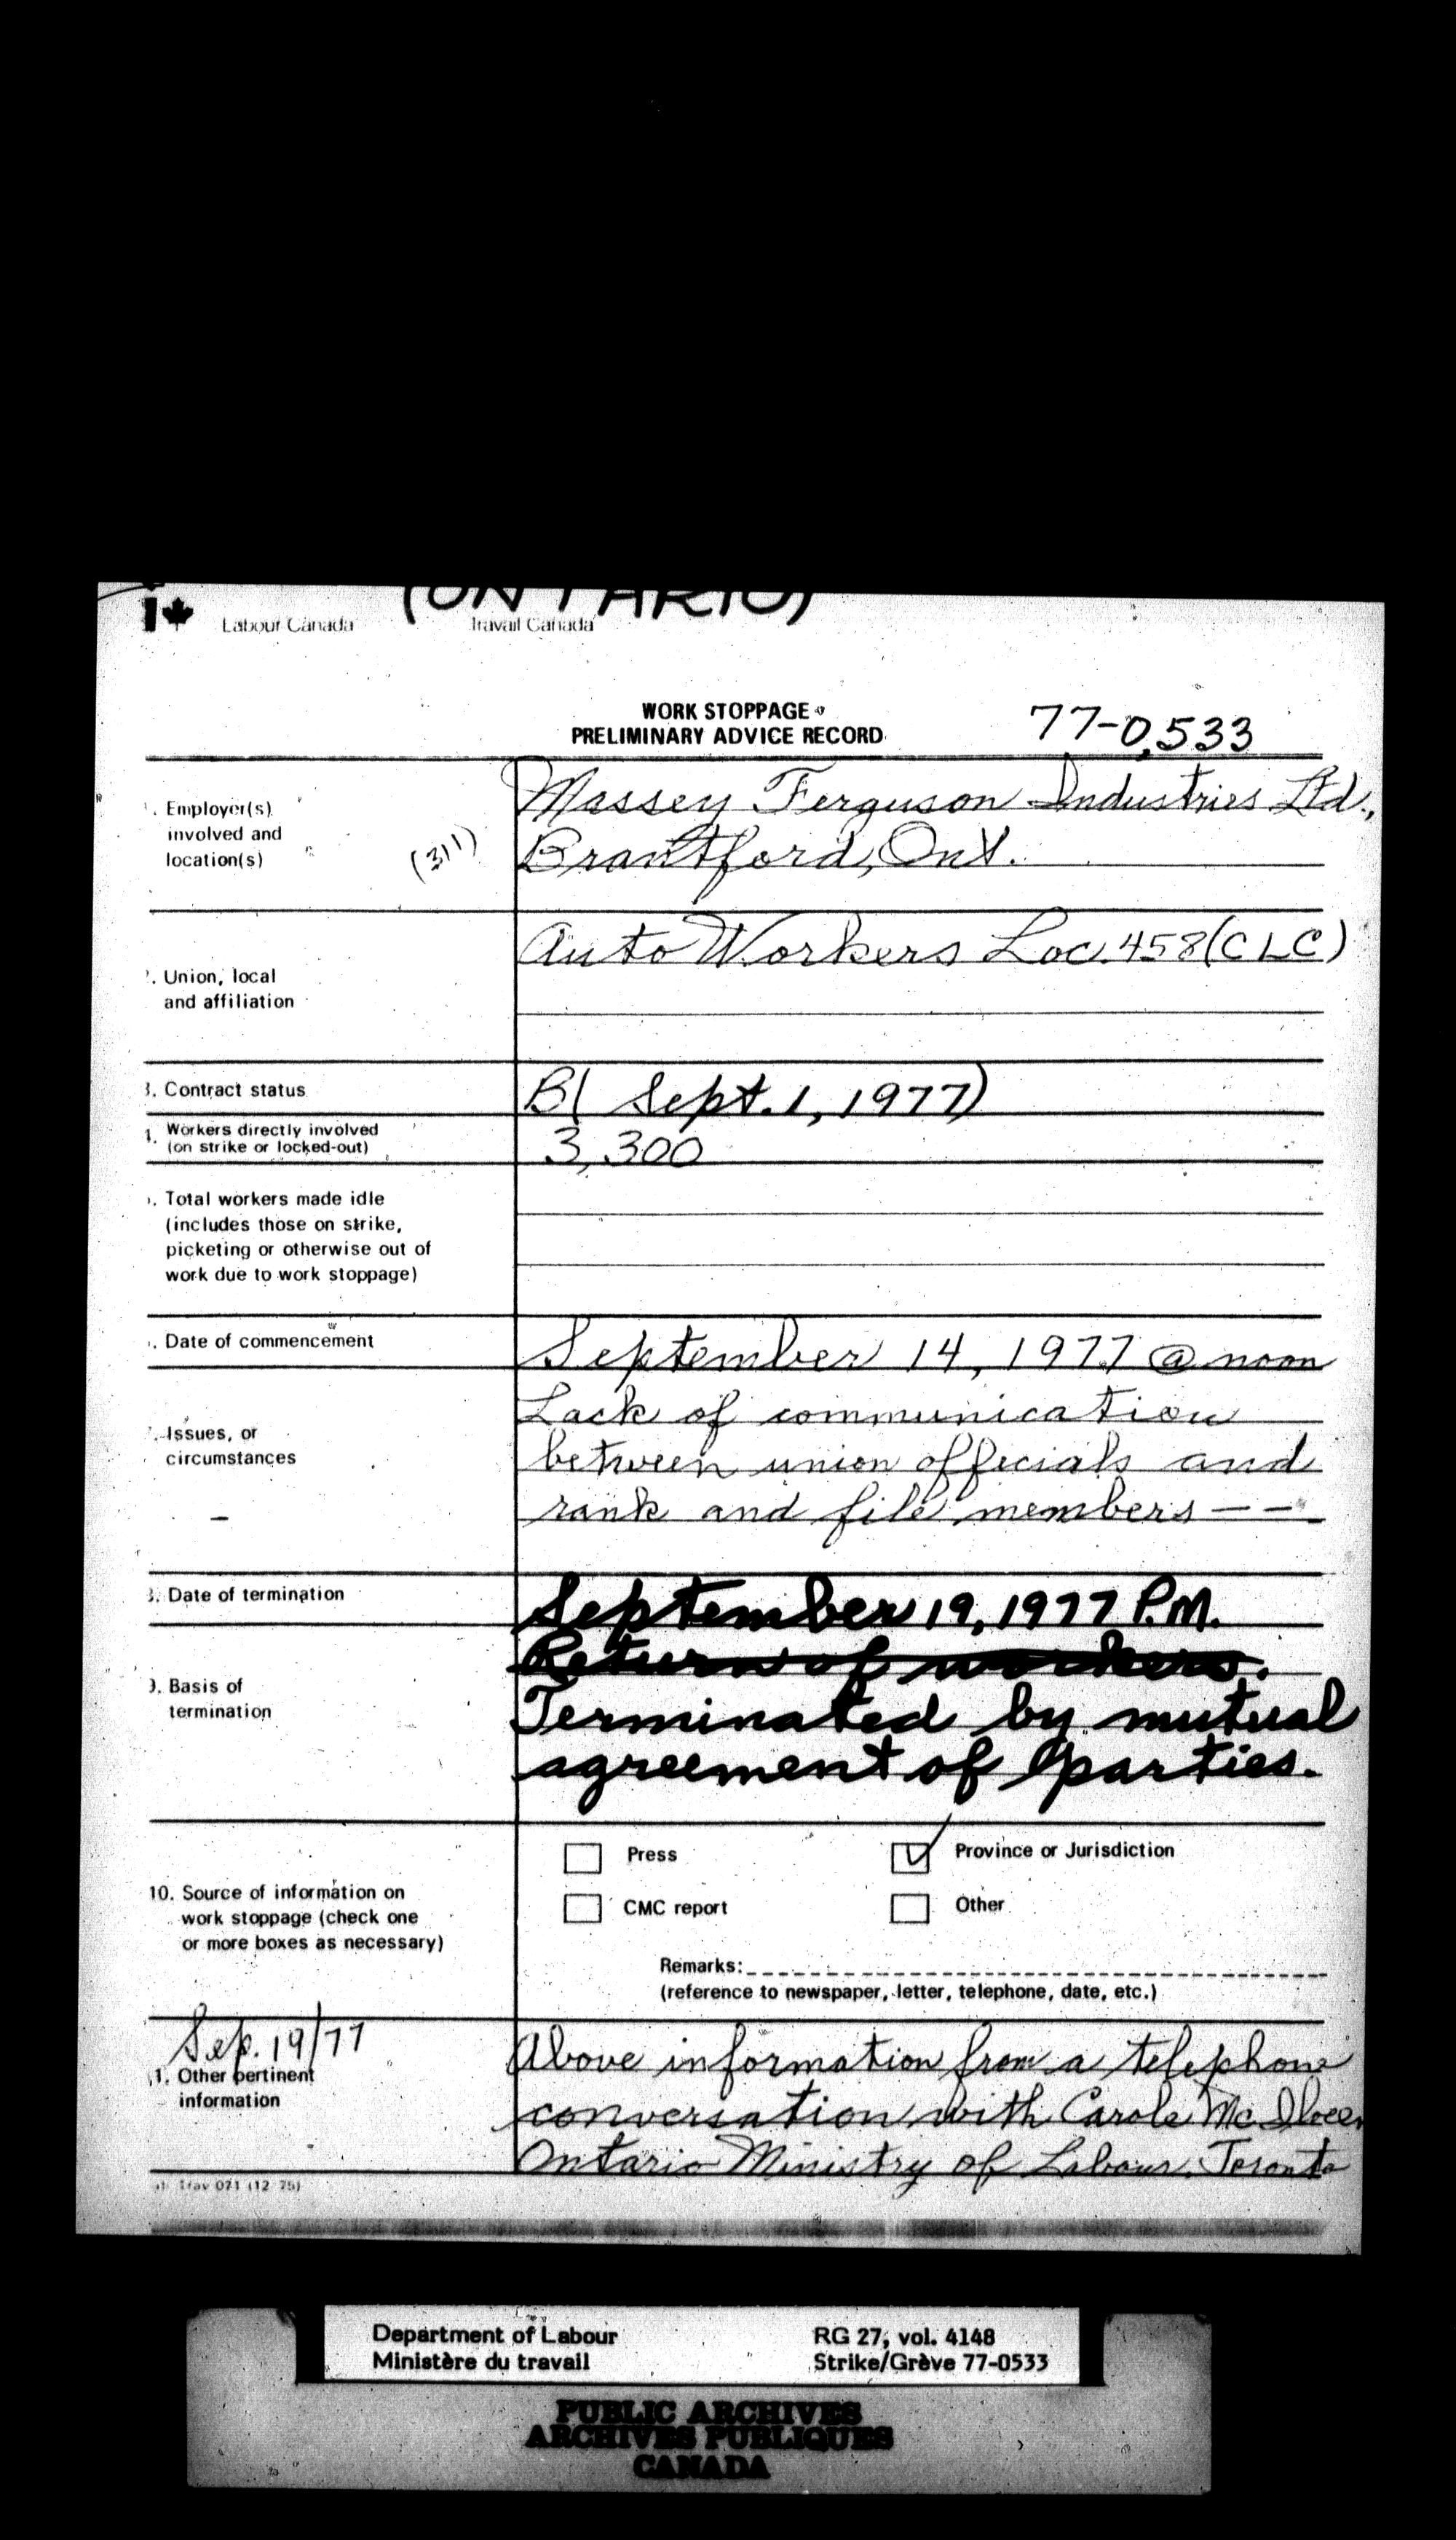 (ONTARIO)
Labour Canada Travail Canada
WORK STOPPAGE
PRELIMINARY ADVICE RECORD
77-0,533
. Employer(s)
involved and
location(s)
(311)
Massey Ferguson Industries Ltd.,
Brantford, Ont.
. Union, local
and affiliation
Auto Workers Loc. 458 (CLC)
3. Contract status
B( Sept. 1, 1977)
Workers directly involved
(on strike or locked-out)
3,300
. Total workers made idle
(includes those on strike,
picketing or otherwise out of
work due to work stoppage)
. Date of commencement
September 14, 1977 @ noon
. Issues, or
circumstances
Lack of communication
between union officials and
rank and file members — —
. Date of termination
September 19, 1977 P.M.
. Basis of
termination
Return of workers.
Terminated by mutual
agreement of parties.
10. Source of information on
work stoppage (check one
or more boxes as necessary)
Press
Province or Jurisdiction
CMC report
Other
Remarks:
(reference to newspaper, letter, telephone, date, etc.)
Sep. 19/77
1. Other pertinent
information
Above information from a telephone
conversation with Carole
Ontario Ministry of Labour, Toronto
trav 071 (12 75)
Department of Labour
Ministère du travail
RG 27, vol. 4148
Strike/Grève 77-0533
PUBLIC ARCHIVES
ARCHIVES PUBLIQUES
CANADA